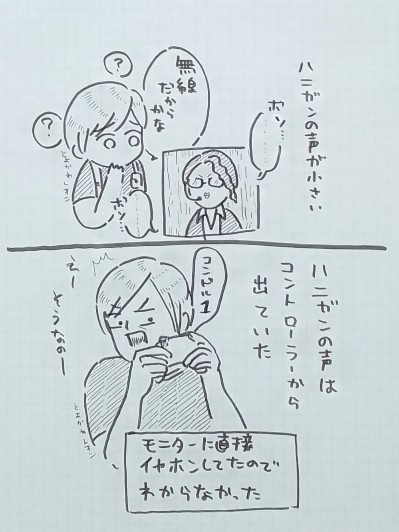 ハニガンの声が小さい
ボソ…
無線
だから
かな
?
?
ボソ…
ハニガンの声は
コントローラーから
出ていた
コンドル1
えー
そうなのー
モニターに直接
イヤホンしてたので
わからなかった